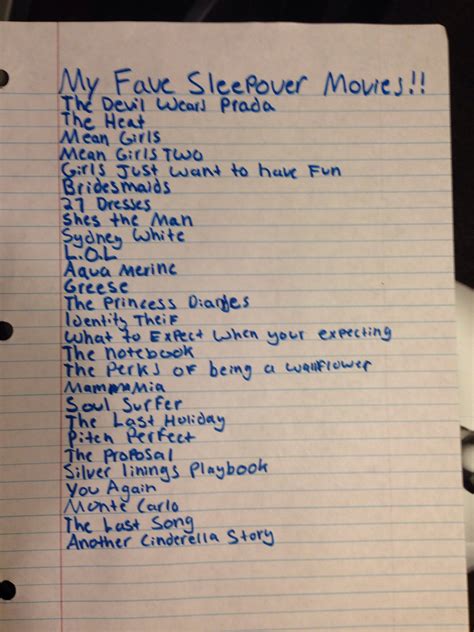 My Fave Sleepover Movies!!
The Devil Wears Prada
The Heat
Mean Girls
Mean Girls TWO
Girls Just Want to have Fun
Bridesmaids
27 Dresses
Shes the Man
Sydney White
L.O.L
Aqua Merine
Greese
The Princess Diaries
Identity Theif
What to Expect when your expecting
The notebook
The Perks of being a wallflower
Mamma Mia
Soul Surfer
The Last Holiday
Pitch Perfect
The Proposal
Silver linings Playbook
You Again
Monte Carlo
The Last Song
Another Cinderella Story